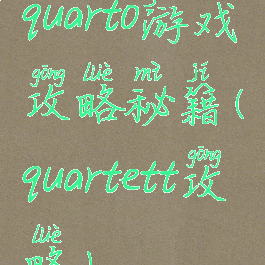 quarto游戏
gōng lüè mì jí
攻略秘籍(
gōng
quartett攻
lüè
略)